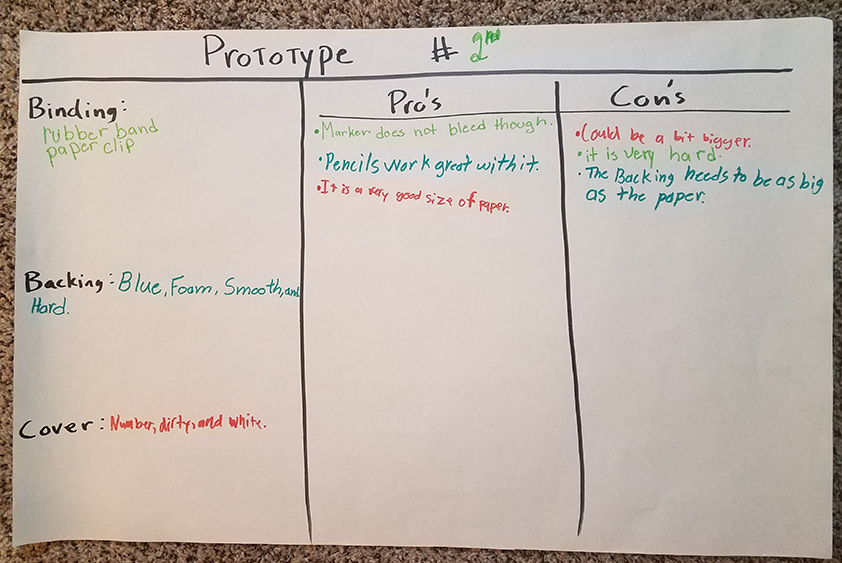 Prototype # 2nd
Binding:
rubber band
paper clip
Backing: Blue, Foam, Smooth, and
Hard.
Cover: Number, dirty, and white.
Pro's
• Marker does not bleed though.
• Pencils work great with it.
• It is a very good size of paper.
Con's
• Could be a bit bigger.
• it is very hard.
• The Backing needs to be as big
as the paper.